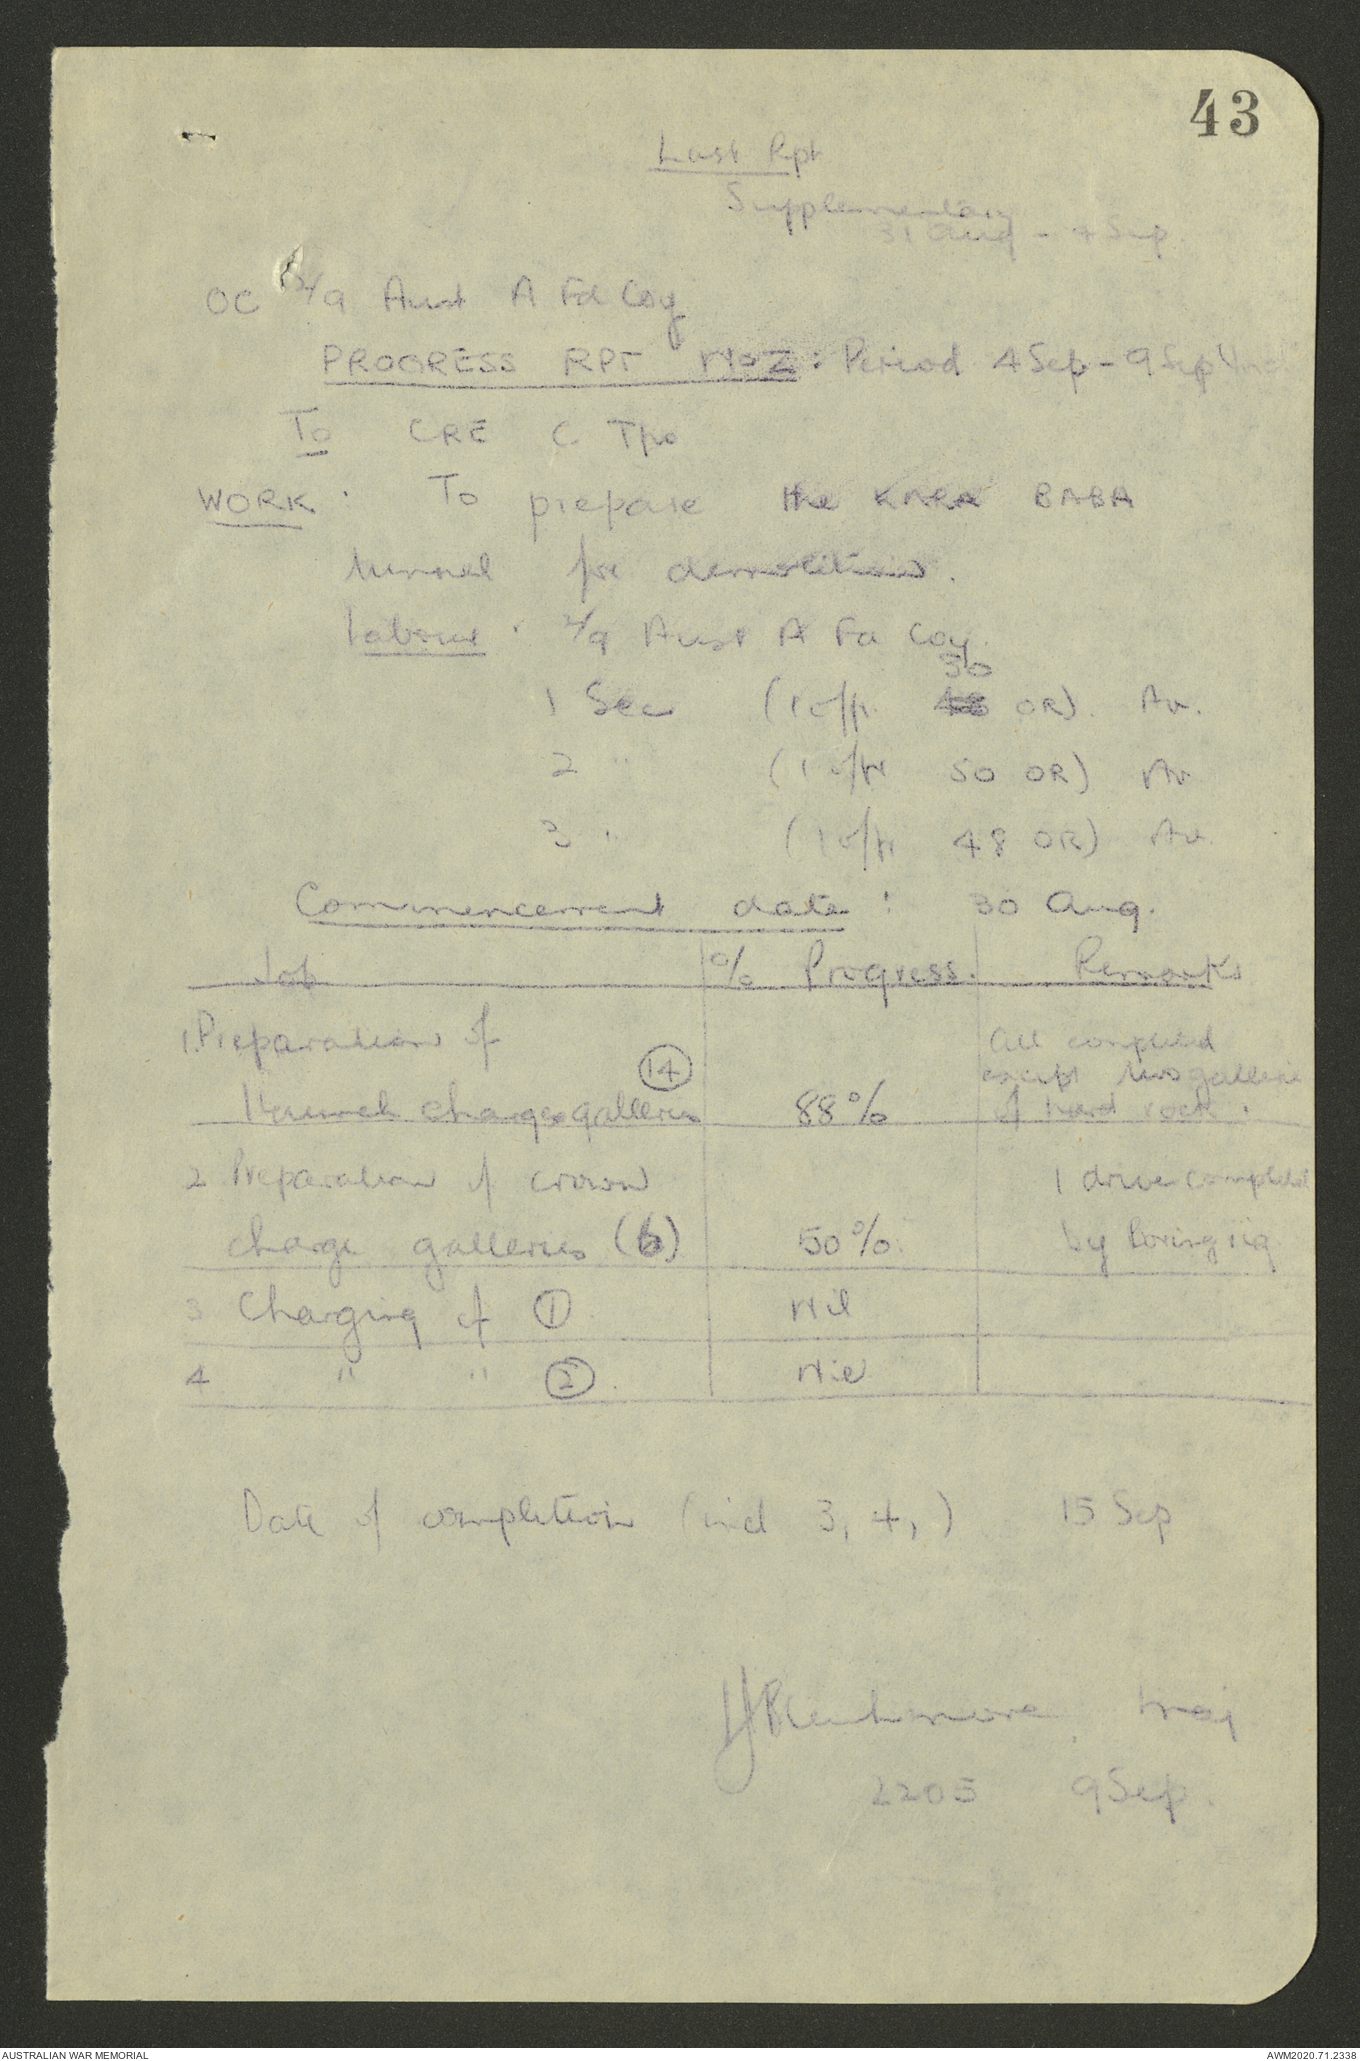 43
Last Rpt
Supplementary
31 Aug - 4 Sep
OC 2/9 Aust A Fd Coy
PROGRESS RPT No 2: Period 4 Sep - 9 Sep
To CRE C Tps
WORK. To prepare the KARA BABA
tunnel for demolition.
labour. 2/9 Aust A Fd Coy.
50
1 Sec (1 offr 48 OR). Av.
2 " (1 offr 50 OR) Av
3 " (1 offr 48 OR) Av.
Commencement date: 30 Aug.
Job % Progress. Remarks
1. Preparation of (14) All completed
except two galleries
Haunch charges galleries 88% of hard rock.
2 Preparation of crown 1 drive completed
charge galleries (6) 50%. by boring rig
3 Charging of (1). Nil
4 " " (2). Nil
Date of completion (incl 3, 4,) 15 Sep
Maj
2205 9 Sep.
AUSTRALIAN WAR MEMORIAL AWM2020.71.2338